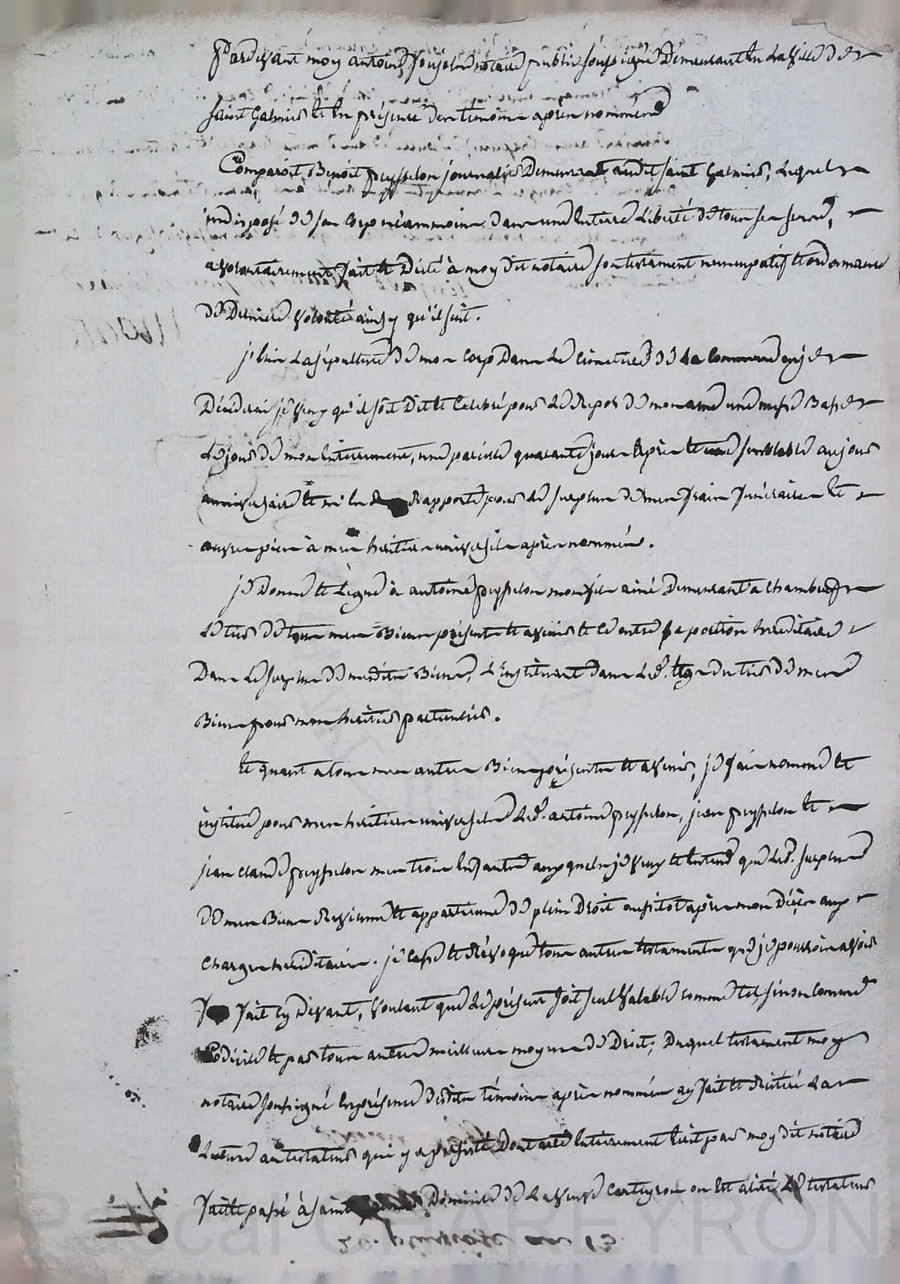 Pardevant moy antoine notaire public soussigné Demeurant en la ville de
saint Galmier et en présence des temoins après nommés
Comparoit Benoit peysselon journalier Demeurant audit saint Galmier, Lequel
indisposé de son corps néammoins dans une entiere Liberté de tous ses sens,
a volontairement fait et Dicté à moy dit notaire son testament nuncupatif et ordonnance
de Derniere volonté ainsy qu'il suit.
j'élis La sépulture de mon corps Dans Le cimetiere de La Commune ou je
Décéderai je veux qu'il soit Dit et Celebré pour Le Repos de mon ame une messe Basse
Le jour de mon enterrement, une pareille quarante jours après et une semblable au jour
anniversaire et m'en Rapporte pour Le surplus de mes frais funéraires et
œuvres pies à mes héritiers universels après nommés.
je Donne et Legue à antoine peysselon mon fils ainé Demeurant a chambœuf
Le tiers de tous mes Biens présents et avenir et ce outre sa portion héréditaire
Dans Le surplus de mesdits Biens, L'Instituant dans Led. Legs du tiers de mes
Biens pour mon héritier particulier.
et quant a tous mes autres Biens présents et avenir, je fais nomme et
institue pour mes héritiers universels Led. antoine peysselon, jean peysselon et
jean claude peysselon mes trois enfants auxquels je veux et entend que Led. surplus
de mes Biens Revienne et appartienne de plein Droit aussitot après mon Décès aux
charges héréditaires. je casse et Révoque tous autres testaments que je pourrois avoir
fait cy Devant, voulant que Le présent soit seul valable comme tel sinon comme
Codicile et par tous autres meilleurs moyens de Droit; Duquel testament moy
notaire soussigné en présence desdits témoins après nommés ay fait et Réitéré La
Lecture au testateur qui y a persisté Dont acte entierement Ecrit par moy dit notaire
fait et passé à saint Domicile de La veuve ou est alité Le testateur
Pascal CHAREYRON